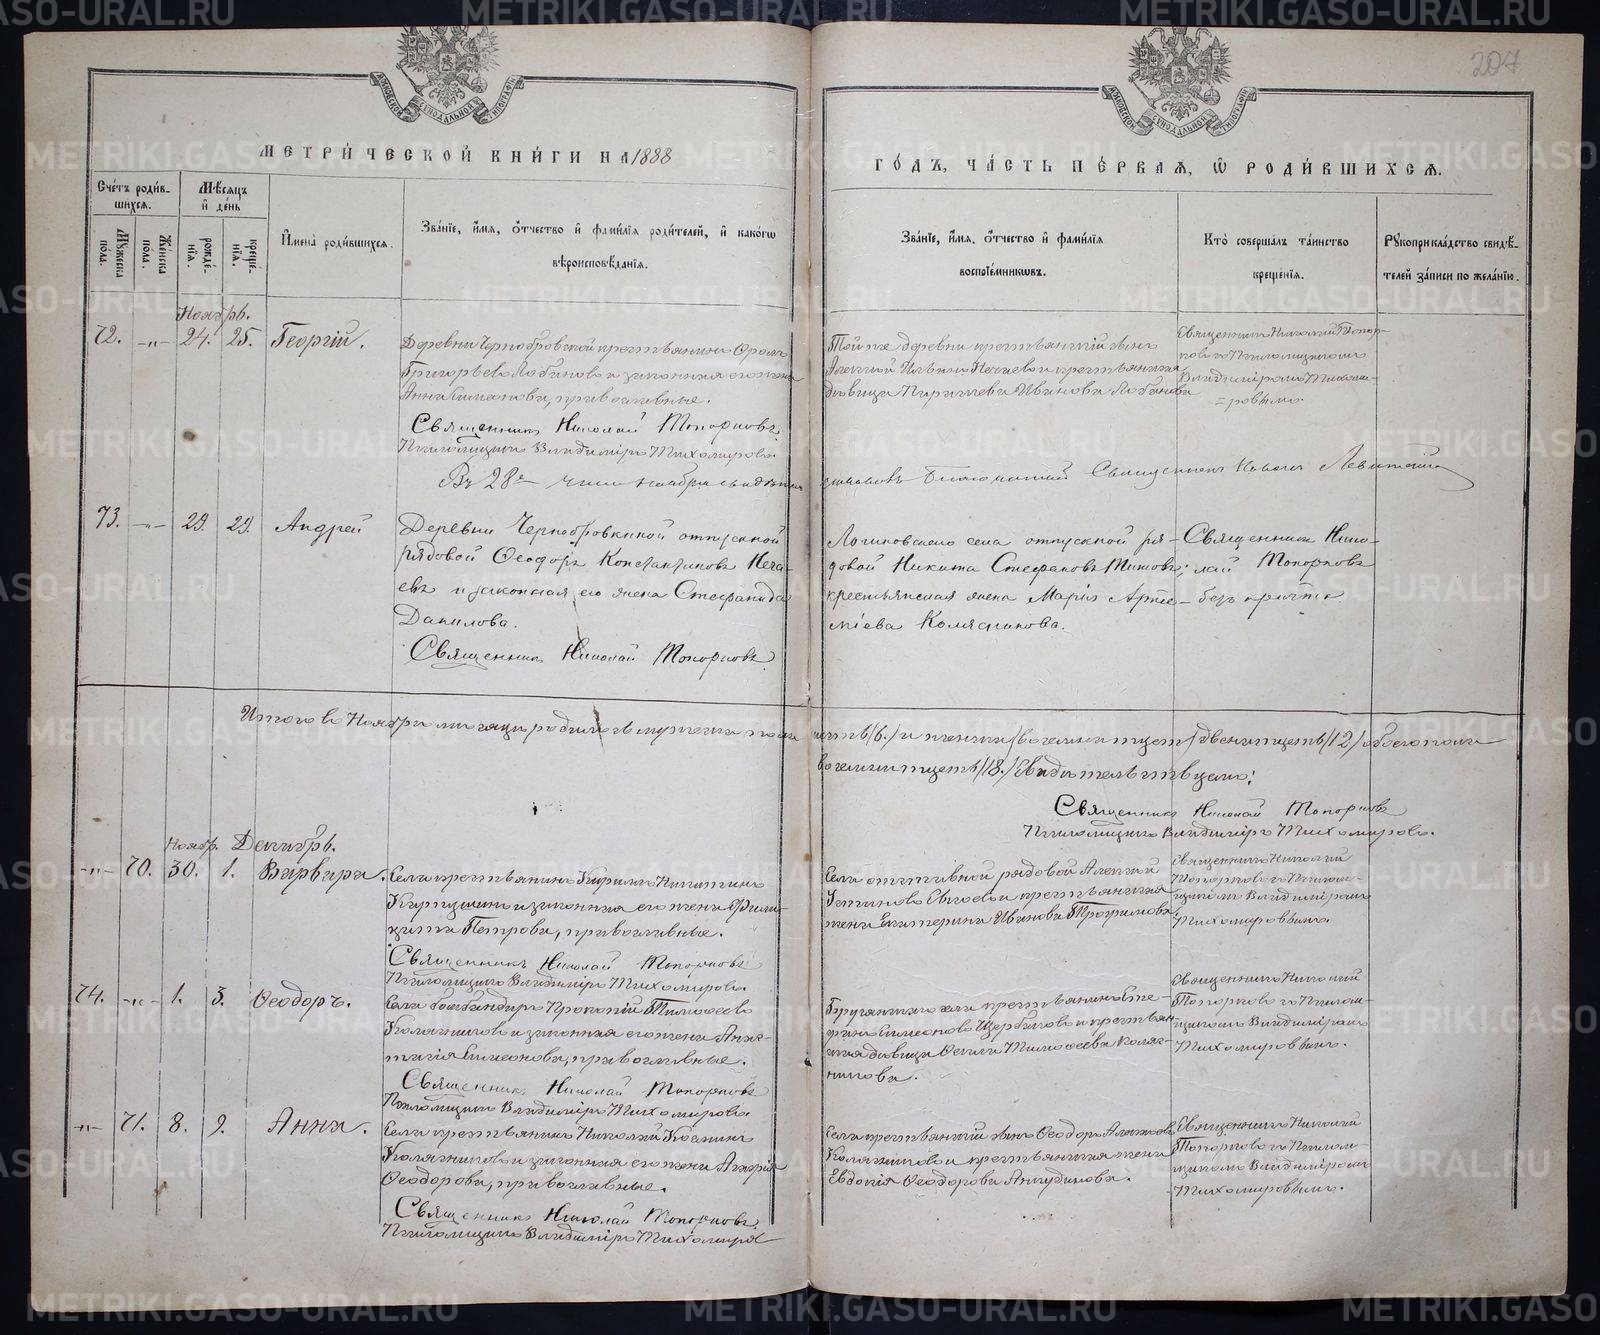 207
МЕТРИ́ЧЕСКОЙ КНИ́ГИ НА 1888
ГО́ДЪ, ЧА́СТЬ ПЕ́РВАЯ, Ѿ РОДИ́ВШИХСЯ.
Сче́тъ роди́вшихся.
Мꙋжеска пола.
Же́нска пола.
Мѣ́сяцъ и҆ де́нь
рожде́нїя.
креще́нїя.
И҆мена̀ роди́вшихся.
Зва́нїе, и҆́мя, ѻ҆́тчество и҆ фами́лїя роди́телей, и҆ како́гѡ вѣроисповѣ́данїя.
Зва́нїе, и҆́мя, ѻ҆́тчество и҆ фами́лїя воспрїе́мникѡвъ.
Кто̀ соверша́лъ та́инство креще́нїя.
Рꙋкоприкла́дство свидѣ́телей за́писи по жела́нїю.
Ноябрь.
72. —„— 24. 25. Георгій.
Деревни Чернобровской крестьянинъ
Григорьевъ Лобановъ и законная его жена
Анна Симеонова, православные.
Священникъ Николай Топорковъ
Псаломщикъ Владиміръ Тихомировъ.
Той же деревни крестьянскій сынъ
Алексей Ильинъ Нечаевъ и крестьянская
дѣвица Ивановна Лобанова
Священникъ Николай Топорковъ
съ Псаломщикомъ
Владиміромъ Тихомировымъ.
Въ 28е число ноября свидетельствовалъ Благочинный Священникъ Левитскій
73. —„— 29. 29. Андрей
Деревни Чернобровкиной отпускной
рядовой Ѳеодоръ Константиновъ Нечаевъ
и законная его жена Стефанида
Данилова.
Священникъ Николай Топорковъ
Логиновскаго села отпускной рядовой
Никита Стефановъ Титовъ;
крестьянская жена Марія Артеміева
Колясникова.
Священникъ Николай Топорковъ
безъ причта
Итого въ Ноябрѣ месяцѣ родилось мужеска пола шесть /6./ и женска двенадцать /12/ обоего пола
восемнадцать /18./ Свидетельствуемъ:
Священникъ Николай Топорковъ
Псаломщикъ Владиміръ Тихомировъ.
Ноябр. Декабрь.
—„— 70. 30. 1. Варвара.
Села крестьянинъ Кириллъ Никитинъ
и законная его жена Фелицата
Петрова, православные.
Священникъ Николай Топорковъ
Псаломщикъ Владиміръ Тихомировъ.
Села отставной рядовой Алексей
и крестьянская
жена Екатерина Иванова Трофимова.
Священникъ Николай
Топорковъ съ Псаломщикомъ
Владиміромъ
Тихомировымъ.
74. —„— 1. 3. Ѳеодоръ.
Села бомбандиръ Прокопій Тимоѳеевъ
Колясниковъ и законная его жена Анастасія
Симеонова, православные.
Священникъ Николай Топорковъ
Псаломщикъ Владиміръ Тихомировъ.
села крестьянинъ
Симеоновъ Щербаковъ и крестьянская
дѣвица Тимоѳеева Колясникова.
Священникъ Николай
Топорковъ съ Псаломщикомъ
Владиміромъ
Тихомировымъ.
—„— 71. 8. 9. Анна.
Села крестьянинъ Николай
Колясниковъ и законная его жена
Ѳеодорова, православные.
Священникъ Николай Топорковъ
Псаломщикъ Владиміръ Тихомировъ
Села крестьянскій сынъ Ѳеодоръ
Колясниковъ и крестьянская жена
Евдокія Ѳеодорова Анкудинова.
Священникъ Николай
Топорковъ съ Псаломщикомъ
Владиміромъ
Тихомировымъ.
METRIKI.GASO-URAL.RU